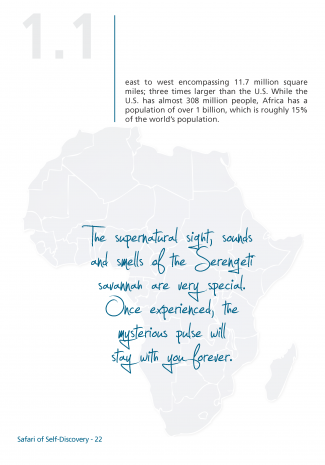 1.1
east to west encompassing 11.7 million square
miles; three times larger than the U.S. While the
U.S. has almost 308 million people, Africa has a
population of over 1 billion, which is roughly 15%
of the world's population.
The supernatural sight, sounds
and smells of the Serengeti
savannah are very special.
Once experienced, the
mysterious pulse will
stay with you forever.
Safari of Self-Discovery - 22